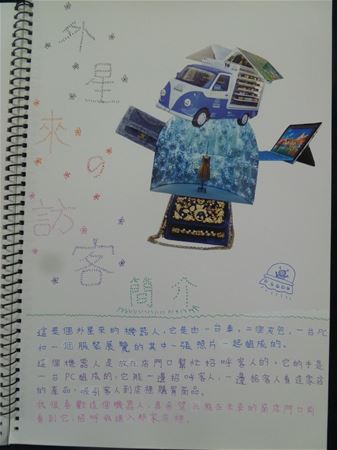 外星來の訪客
簡介
這是個外星來的機器人，它是由一台車，二個皮包，一台PC
和一個服裝展覽的其中一張照片一起組成的。
這個機器人是放在店門口幫忙招呼客人的，它的手是
一台PC組成的，它能一邊招呼客人，一邊給客人看這家店
的產品，吸引客人到店裡購買商品。
我很喜歡這個機器人，真希望能在未來的商店門口前
看到它，招呼我進入那家店裡。